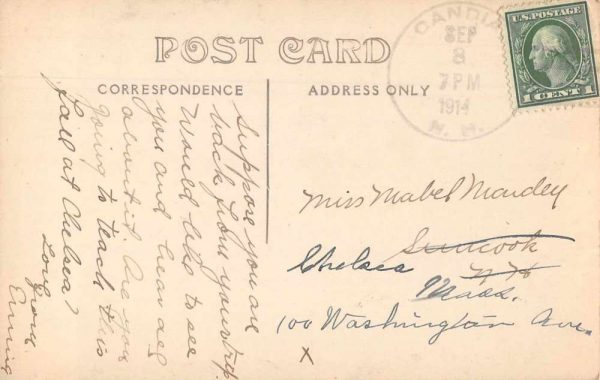 POST CARD
CORRESPONDENCE
ADDRESS ONLY
CANDIA
SEP
8
7 PM
1914
N. H.
U.S. POSTAGE
1 CENT 1
Suppose you are
back from your trip.
Would like to see
you and hear all
about it. Are you
going to teach this
fall at Chelsea?
Love from
Miss Mabel
Suncook
N H
Chelsea
Mass.
100 Washington Ave.
X